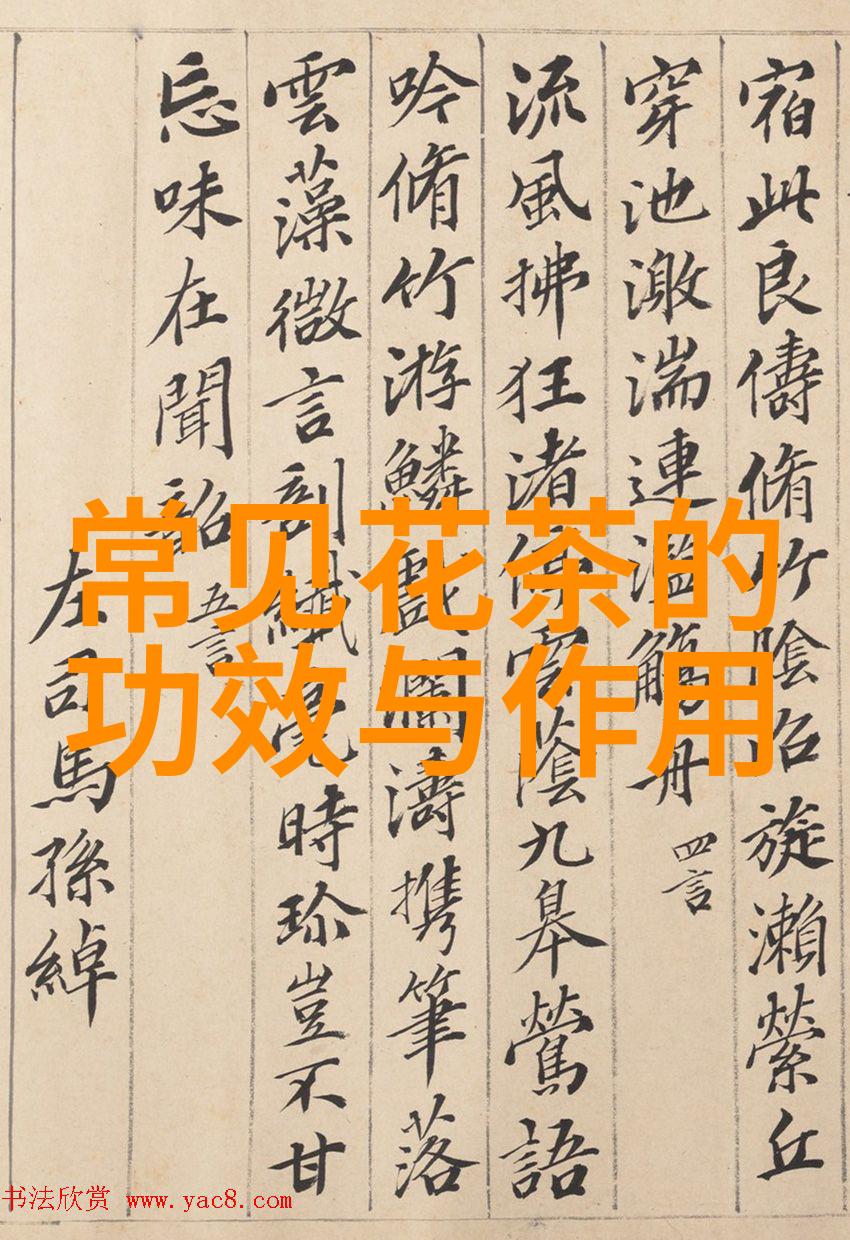 常见花茶的
功效与作用
宿此良儔脩竹陰沼旋瀨縈丘
穿池激湍連濫觴舟 四言
流風拂狂渚停雲蔭九皋鶯語
吟脩竹游鱗戲瀾濤携筆落
雲藻微言剖纖毫時珍豈不甘
忘味在聞韶 五言
左司馬孫綽
书法欣赏 www.yac8.com